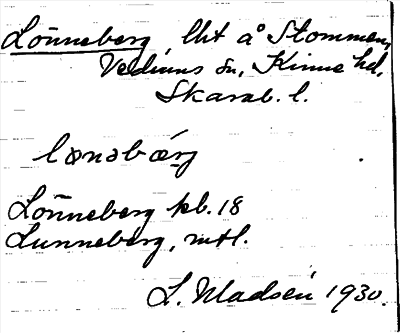 Lönneberg, lht å Stommen,
Vedums sn, Kinne hd,
Skarab. l.
lønəbærg
Lönneberg kb. 18
Lunneberg, mtl.
L. Madsén 1930.